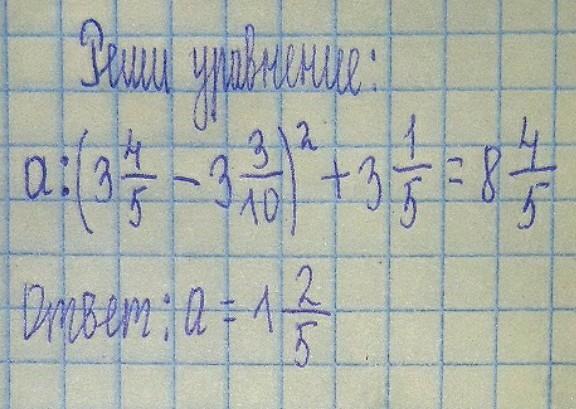 Реши уравнение:
a:(3 4/5 - 3 3/10)² + 3 1/5 = 8 4/5
Ответ: a = 1 2/5